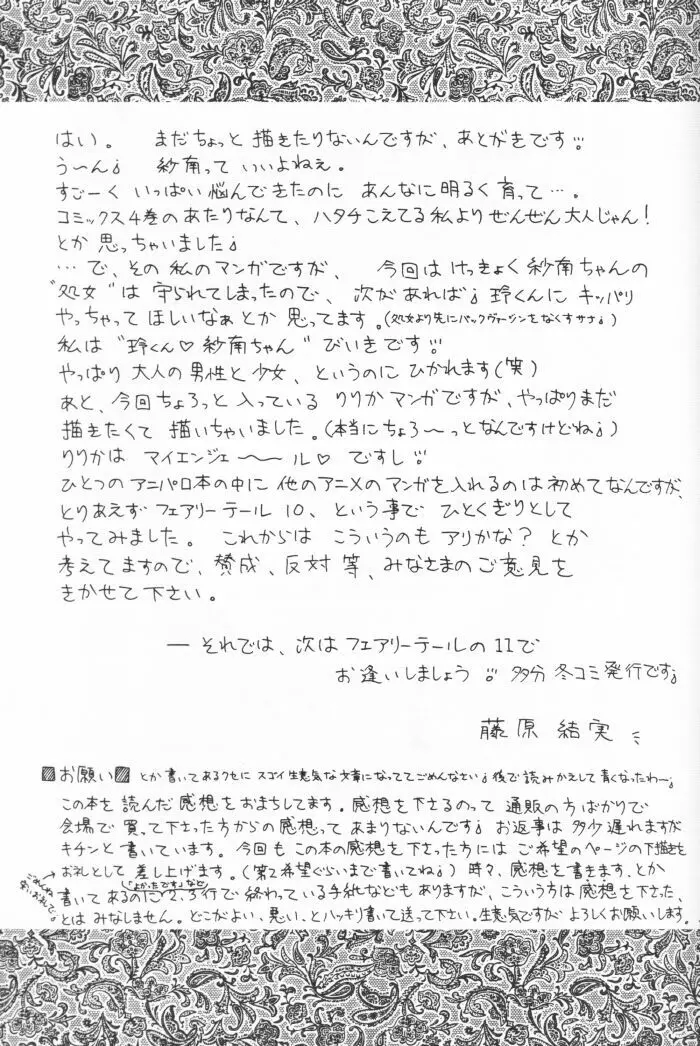 はい。 まだちょっと描きたりないんですが、あとがきです!!
う〜ん、 紗南っていいよねぇ。
すごーくいっぱい悩んできたのに あんなに明るく育って…。
コミックス4巻のあたりなんて、ハタチこえてる私よりぜんぜん大人じゃん!
とか思っちゃいました。
あと、今回ちょろっと入っているりりかマンガですが、やっぱりまだ
描きたくて描いちゃいました。(本当にちょろ〜っとなんですけどね)
りりかは マイエンジェ〜ル♡ ですし!!
ひとつのアニパロ本の中に他のアニメのマンガを入れるのは初めてなんですが、
とりあえずフェアリーテール10、という事でひとくぎりとして
やってみました。 これからはこういうのもアリかな?とか
考えてますので、賛成、反対等、みなさまのご意見を
きかせて下さい。
— それでは、次はフェアリーテールの11で
お逢いしましょう!! 多分冬コミ発行です
藤原結実
お願い とか書いてあるクセにスゴイ生意気な文章になっててごめんなさい 後で読みかえして青くなったわー
この本を読んだ感想をおまちしてます。感想を下さるのって通販の方ばかりで
会場で買って下さった方からの感想ってあまりないんです お返事は多少遅れますが
キチンと書いています。今回もこの本の感想を下さった方にはご希望のページの下描きを
お礼として差し上げます。(第2希望ぐらいまで書いてね)時々、感想を書きます、とか
書いてあるのに2、3行で終わっている手紙などもありますが、こういう方は感想を下さった、
とはみなしません。どこがよい、悪い、とハッキリ書いて送って下さい。生意気ですがよろしくお願いします。